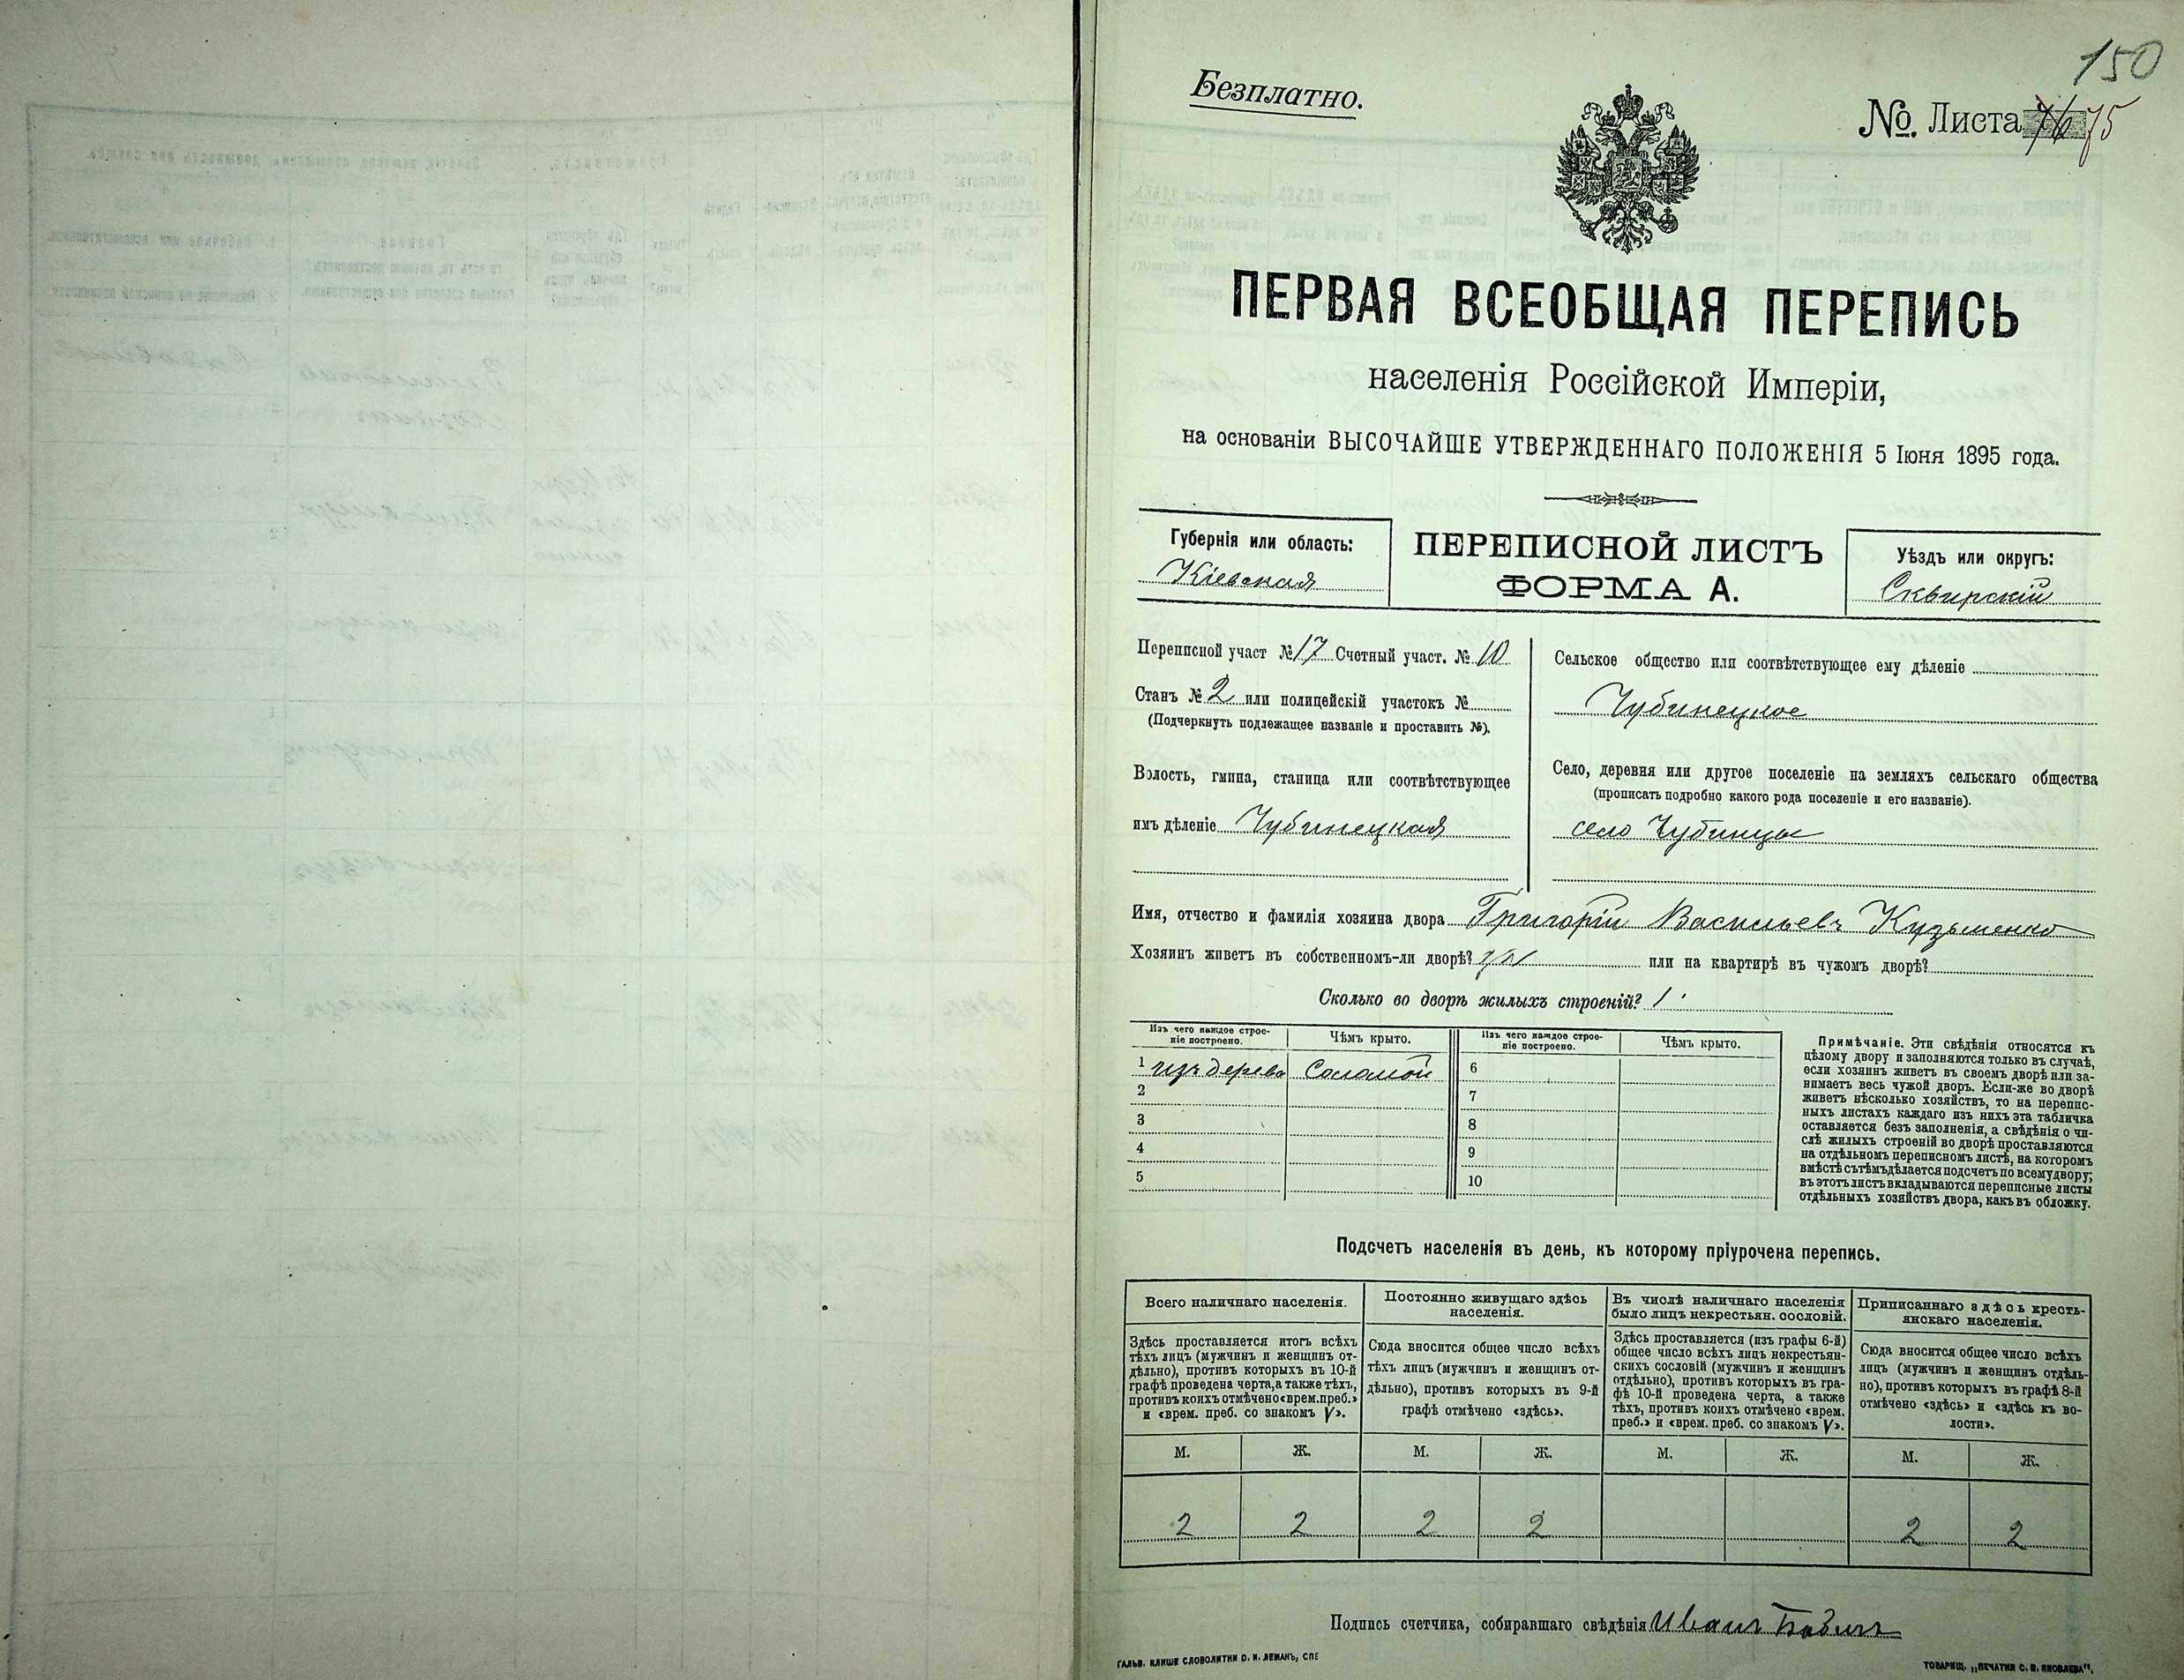 150
Безплатно.
№ Листа 76 75
ПЕРВАЯ ВСЕОБЩАЯ ПЕРЕПИСЬ
населенія Россійской Имперіи,
на основаніи ВЫСОЧАЙШЕ УТВЕРЖДЕННАГО ПОЛОЖЕНІЯ 5 Іюня 1895 года.
Губернія или область:
Кіевская
ПЕРЕПИСНОЙ ЛИСТЪ
ФОРМА А.
Уѣздъ или округъ:
Сквирскій
Переписной участ № 17 Счетный участ. № 10
Станъ № 2 или полицейскій участокъ №
(Подчеркнуть подлежащее названіе и проставить №).
Волость, гмина, станица или соотвѣтствующее
имъ дѣленіе Чубинецкая
Сельское общество или соотвѣтствующее ему дѣленіе
Чубинецкое
Село, деревня или другое поселеніе на земляхъ сельскаго общества
(прописать подробно какого рода поселеніе и его названіе).
село Чубинцы
Имя, отчество и фамилія хозяина двора Григорій Васильевъ Кузьменко
Хозяинъ живетъ въ собственномъ-ли дворѣ? или на квартирѣ въ чужомъ дворѣ?
Сколько во дворѣ жилыхъ строеній? 1
Изъ чего каждое строе-
ніе построено.
Чѣмъ крыто.
Изъ чего каждое строе-
ніе построено.
Чѣмъ крыто.
1 изъ дерева Соломой 6
2 7
3 8
4 9
5 10
Примѣчаніе. Эти свѣдѣнія относятся къ
цѣлому двору и заполняются только въ случаѣ,
если хозяинъ живетъ въ своемъ дворѣ или за-
нимаетъ весь чужой дворъ. Если-же во дворѣ
живетъ нѣсколько хозяйствъ, то на перепис-
ныхъ листахъ каждаго изъ нихъ эта табличка
оставляется безъ заполненія, а свѣдѣнія о чи-
слѣ жилыхъ строеній во дворѣ проставляются
на отдѣльномъ переписномъ листѣ, на которомъ
вмѣстѣ съ тѣмъ дѣлается подсчетъ по всему двору;
въ этотъ листъ вкладываются переписные листы
отдѣльныхъ хозяйствъ двора, какъ въ обложку.
Подсчетъ населенія въ день, къ которому пріурочена перепись.
Всего наличнаго населенія.
Здѣсь проставляется итогъ всѣхъ
тѣхъ лицъ (мужчинъ и женщинъ от-
дѣльно), противъ которыхъ въ 10-й
графѣ проведена черта, а также тѣхъ,
противъ коихъ отмѣчено «врем. преб.»
и «врем. преб. со знакомъ V».
Постоянно живущаго здѣсь
населенія.
Сюда вносится общее число всѣхъ
тѣхъ лицъ (мужчинъ и женщинъ от-
дѣльно), противъ которыхъ въ 9-й
графѣ отмѣчено «здѣсь».
Въ числѣ наличнаго населенія
было лицъ некрестьян. сословій.
Здѣсь проставляется (изъ графы 6-й)
общее число всѣхъ лицъ некрестьян-
скихъ сословій (мужчинъ и женщинъ
отдѣльно), противъ которыхъ въ гра-
фѣ 10-й проведена черта, а также
тѣхъ, противъ коихъ отмѣчено «врем.
преб.» и «врем. преб. со знакомъ V».
Приписаннаго здѣсь кресть-
янскаго населенія.
Сюда вносится общее число всѣхъ
лицъ (мужчинъ и женщинъ отдѣль-
но), противъ которыхъ въ графѣ 8-й
отмѣчено «здѣсь» и «здѣсь къ во-
лости».
М. Ж. М. Ж. М. Ж. М. Ж.
2 2 2 2 2 2
Подпись счетчика, собиравшаго свѣдѣнія Иванъ
ГАЛЬВ. КЛИШЕ СЛОВОЛИТНИ О. И. ЛЕМАНЪ, СПБ
ТОВАРИЩ. „ПЕЧАТНЯ С. П. ЯКОВЛЕВА“.